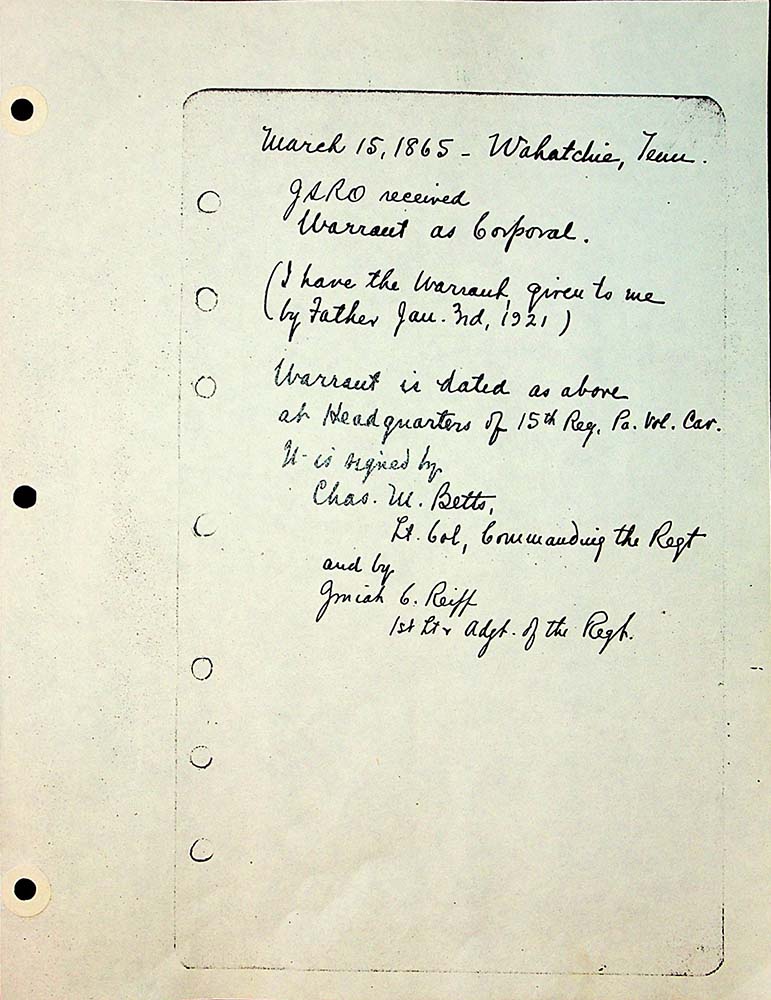 March 15, 1865 - Wahatchie, Tenn.
received
Warrant as Corporal.
(I have the Warrant, given to me
(by Father Jan. 3rd, 1921)
Warrant is dated as above
at Headquarters of 15th Reg. Pa. Vol. Cav.
It is signed by
Chas. M. Betts,
Lt. Col, Commanding the Regt
and by
C. Reiff
1st Lt & Adgt. of the Regt.